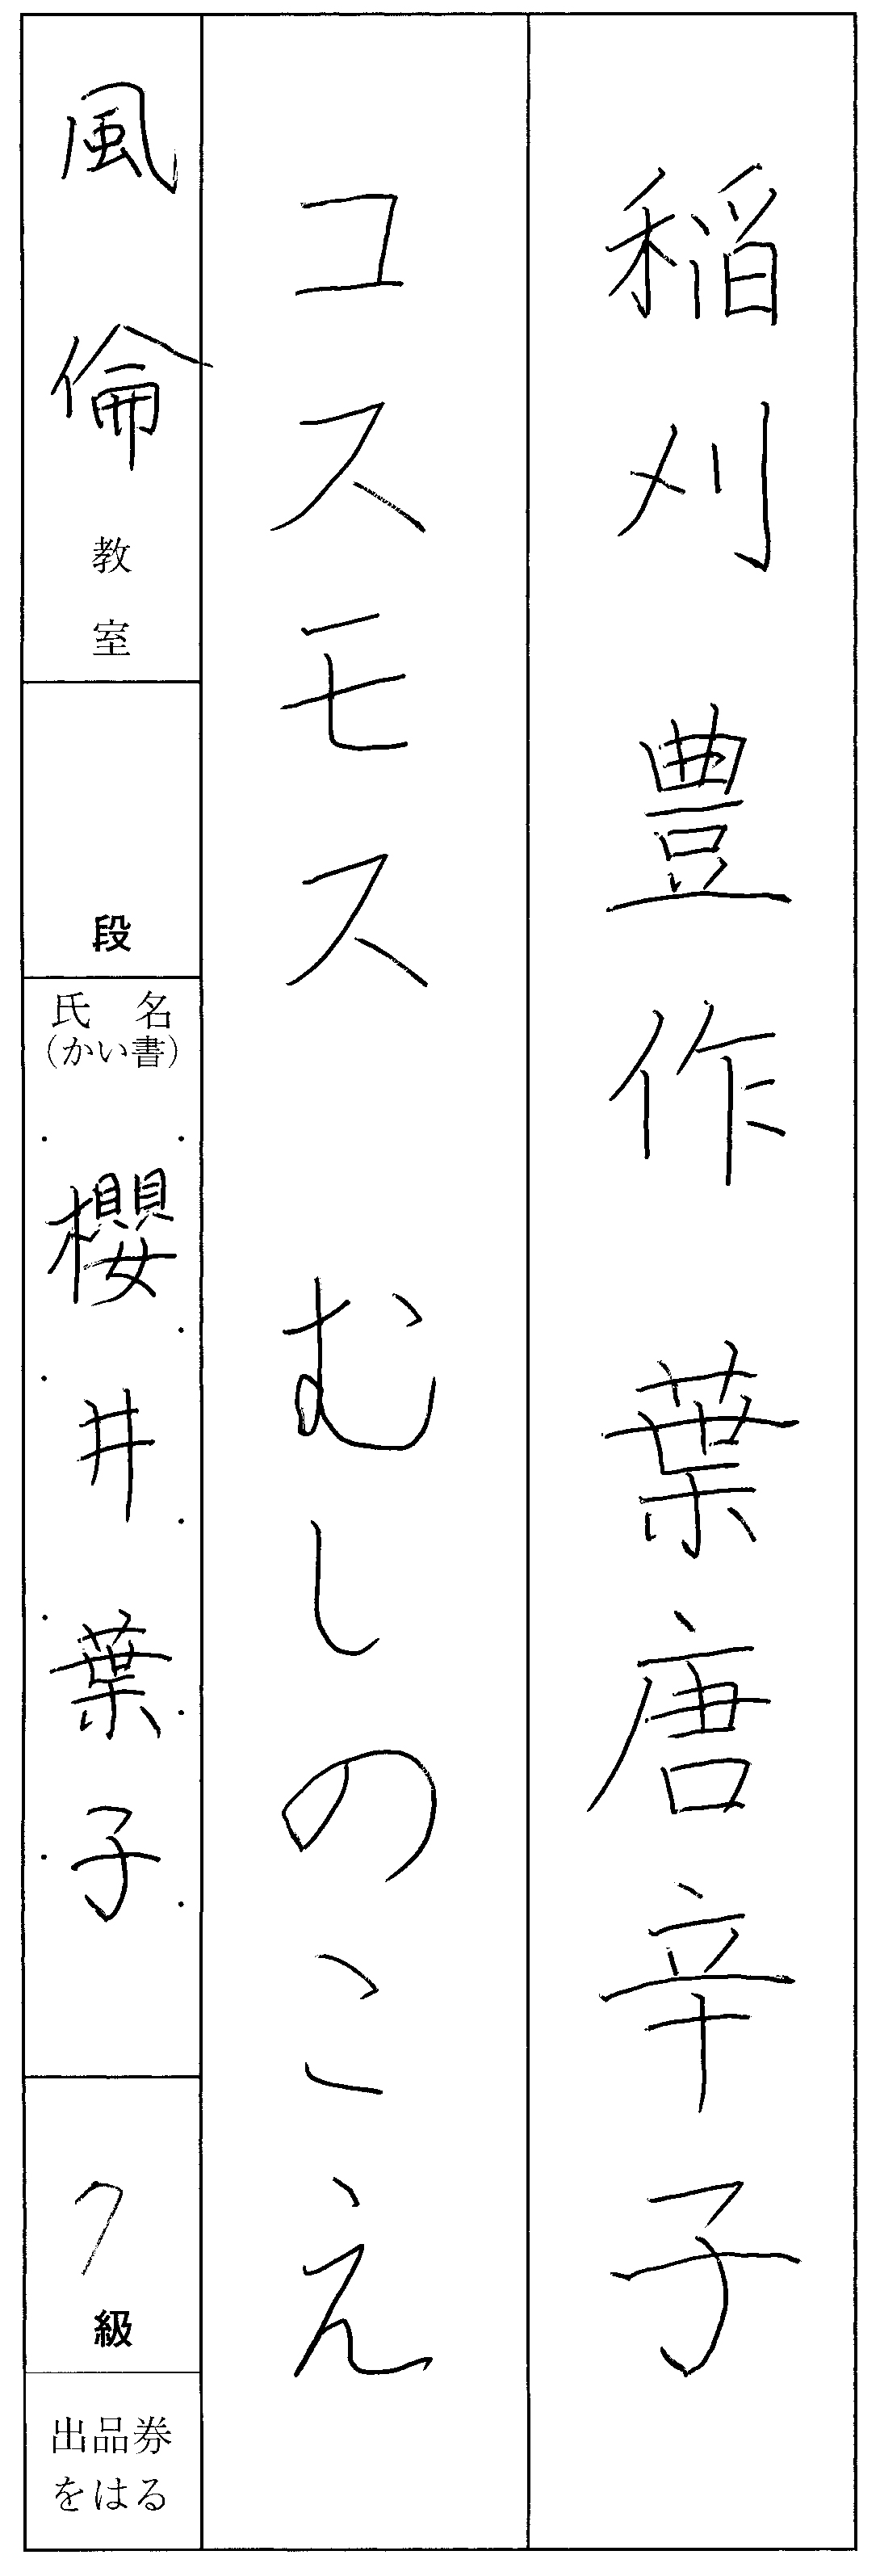 稲刈豊作葉唐辛子
コスモス　むしのこえ
風倫教室
段
氏名
（かい書）
櫻井葉子
7級
出品券
をはる